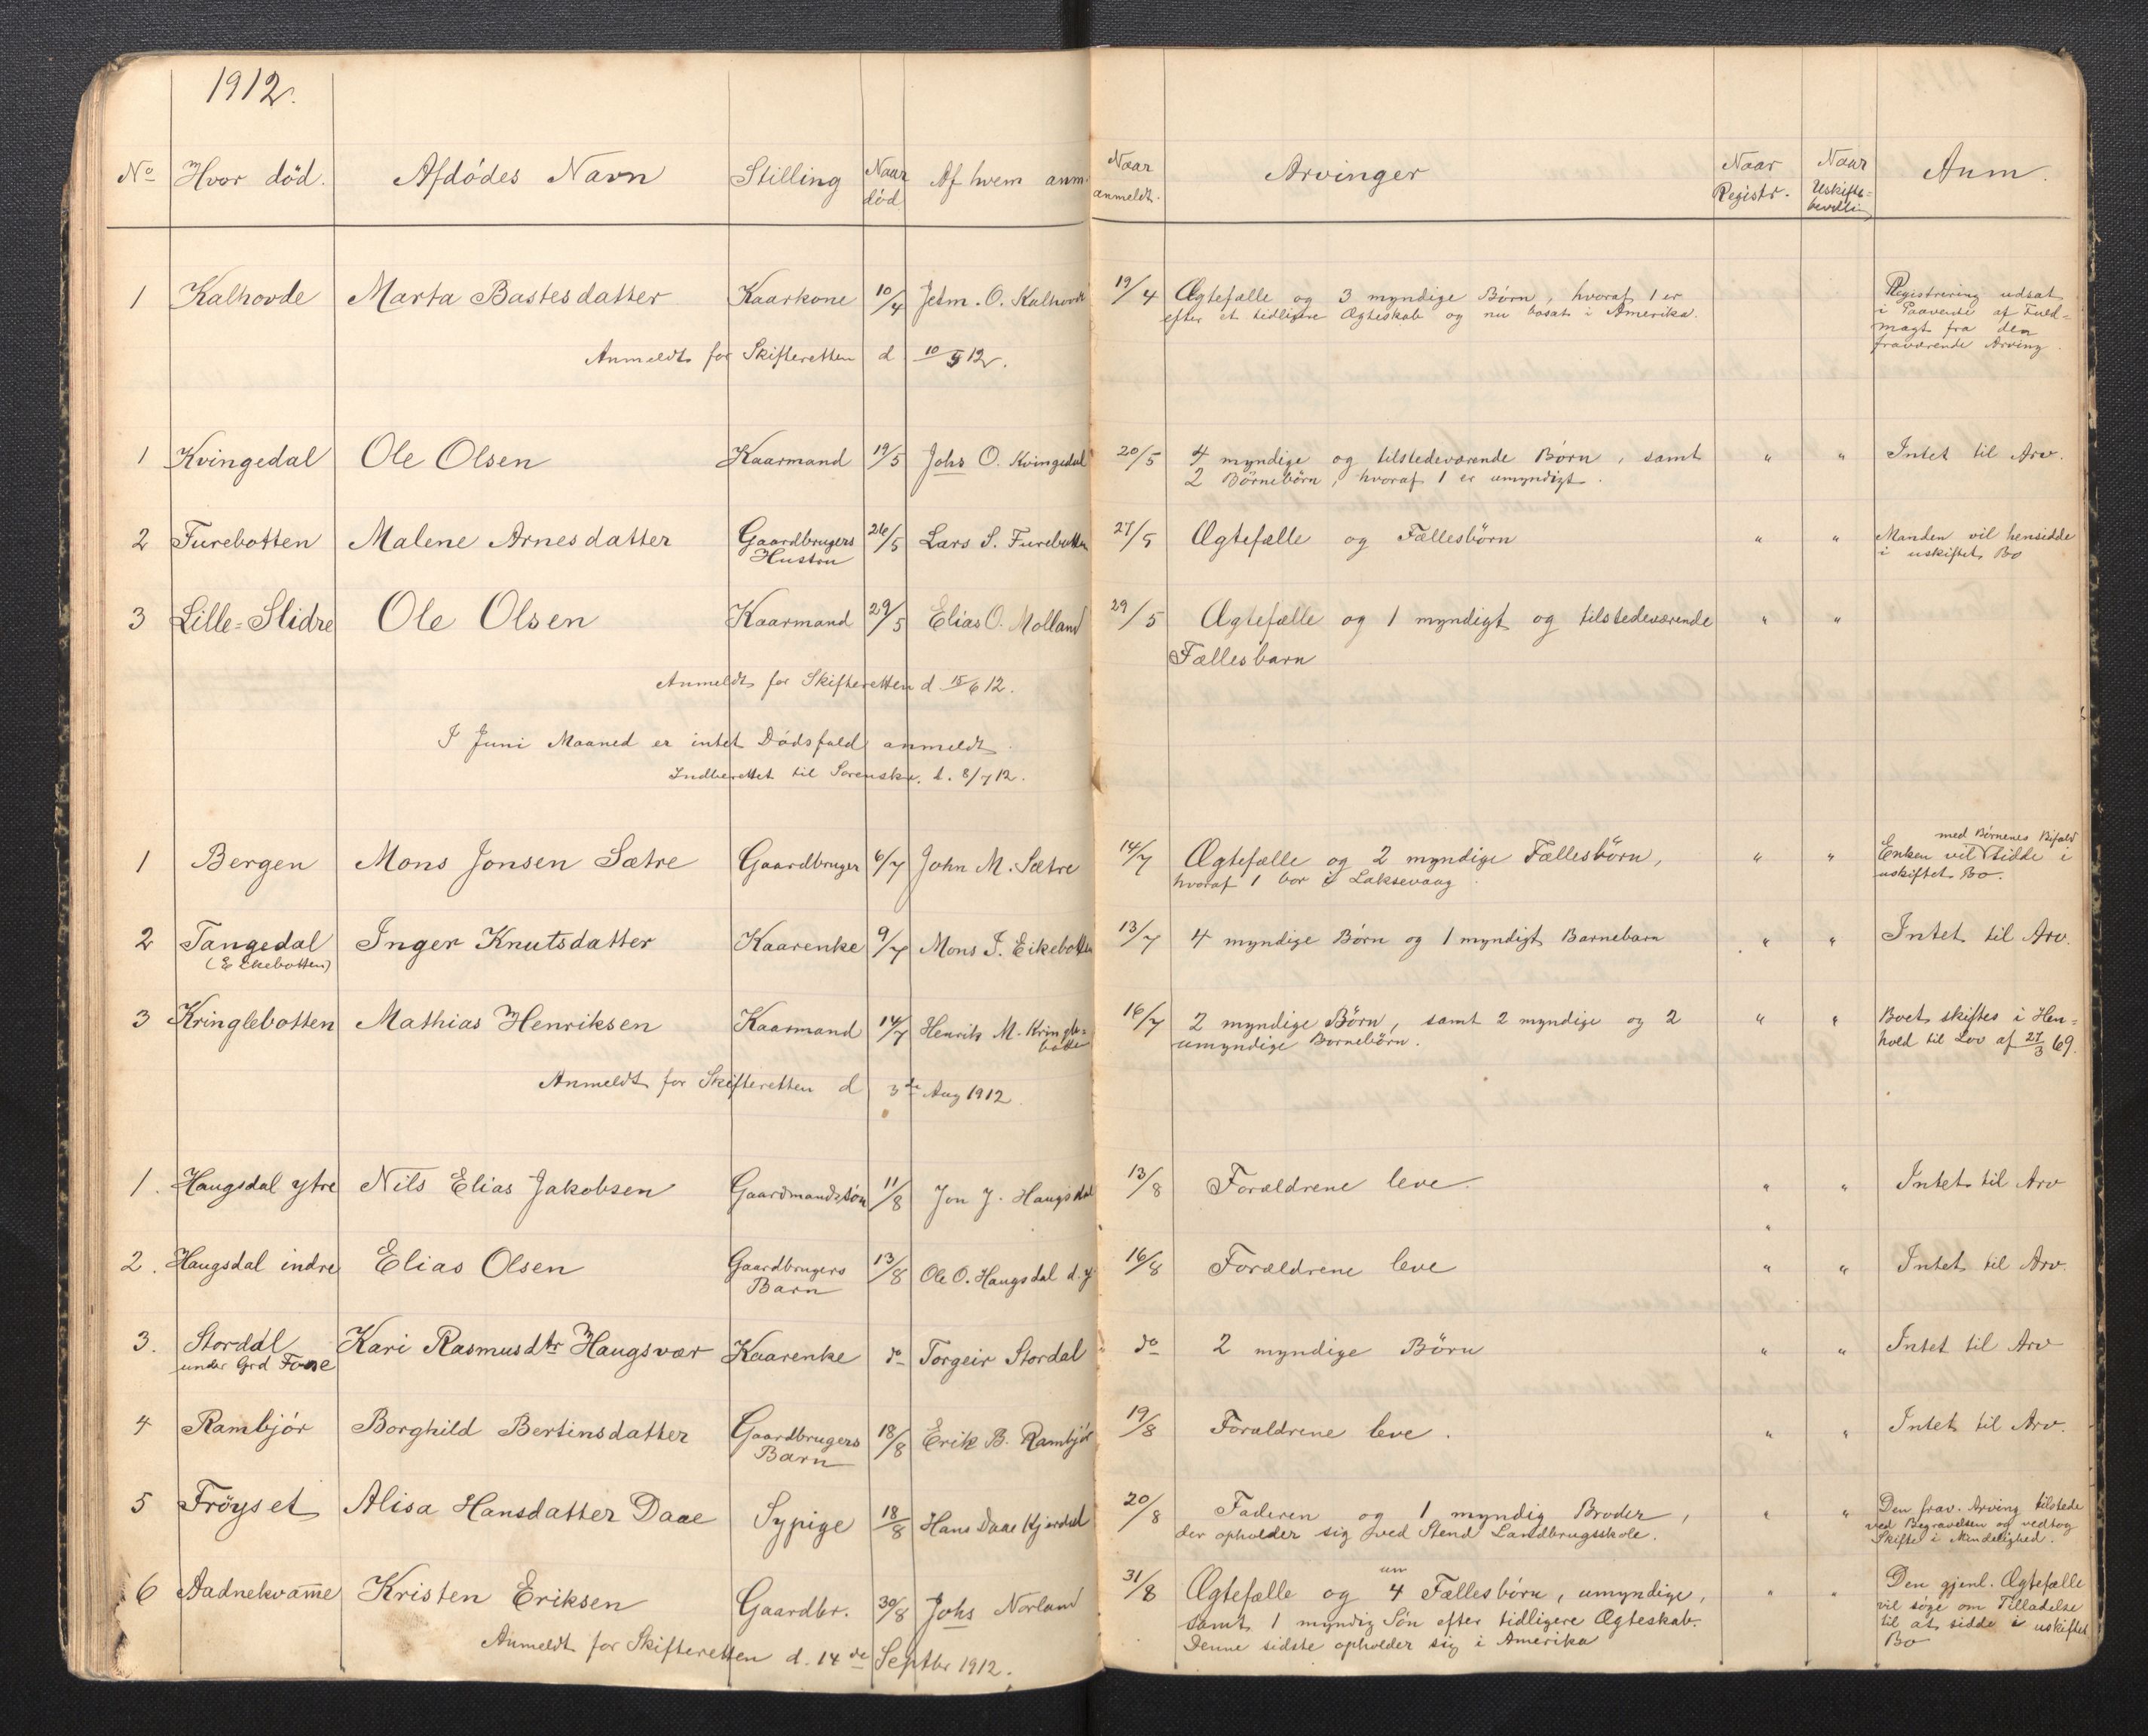 1912.
No Hvor död. Afdödes Navn Stilling Naar död Af hvem anm. Naar anmeldt. Arvinger Naar Registr. Naar Uskifte-bevilling Anm.
1 Kalhovde Marta Bastesdatter Kaarkone 10/4 O. Kalhovde 19/4 Ægtefælle og 3 myndige Börn, hvoraf 1 er
efter et tidligere Ægteskab og nu bosat i Amerika.
Registrering udsat
i Paavente af Fuld-
magt fra den
fraværende Arving.
Anmeldt for Skifteretten d 10/5 12.
1 Kvingedal Ole Olsen Kaarmand 19/5 Johs O. Kvingedal 20/5 4 myndige og tilstedeværende Börn, samt " " Intet til Arv.
2 Börnebörn, hvoraf 1 er umyndigt.
2 Furebotten Malene Arnesdatter Gaardbrugers 26/5 Lars S. Furebotten 27/5 Ægtefælle og Fællesbörn " " Manden vil hensidde
Hustru i uskiftet Bo
3 Lille-Slidre Ole Olsen Kaarmand 29/5 Elias O. Molland 29/5 Ægtefælle og 1 myndigt og tilstedeværende " "
Fællesbarn
Anmeldt for Skifteretten d 15/6 12.
I Juni Maaned er intet Dödsfald anmeldt.
Indberettet til Sorenskr. d. 8/7 12.
1 Bergen Mons Jonsen Sætre Gaardbruger 6/7 John M. Sætre 14/7 Ægtefælle og 2 myndige Fællesbörn, " "
hvoraf 1 bor i Laksevaag.
med Börnenes Bifald
Enken vil sidde i
uskiftet Bo.
2 Tangedal Inger Knutsdatter Kaarenke 9/7 Mons I. Eikebotten 13/7 4 myndige Börn og 1 myndigt Barnebarn " " Intet til Arv.
(Eikebotten)
3 Kringlebotten Mathias Henriksen Kaarmand 14/7 Henrik M. Kringle- 16/7 2 myndige Börn, samt 2 myndige og 2 " " Boet skiftes i Hen-
botten umyndige Bornebörn. hold til Lov af 27/3 69.
Anmeldt for Skifteretten d 3de Aug 1912.
1. Haugsdal ytre Nils Elias Jakobsen Gaardmandssön 11/8 Jon J. Haugsdal 13/8 Forældrene leve. " " Intet til Arv
"
2. Haugsdal indre Elias Olsen Gaardbrugers 13/8 Ole O. Haugsdal d.y. 16/8 Forældrene leve " " Intet til Arv.
Barn
3. Stordal Kari Rasmusdtr Haugsvær Kaarenke do Torgeir Stordal do 2 myndige Börn " " Intet til Arv
under Grd Fone
4 Rambjör Borghild Bertinsdatter Gaardbrugers 18/8 Erik B. Rambjör 19/8 Forældrene leve. " " Intet til Arv.
Barn
5 Fröyset Alisa Hansdatter Daae Sypige 18/8 Hans Daae Kjerdal 20/8 Faderen og 1 myndig Broder, " "
der opholder sig ved Stend Landbrugsskole.
Den frav. Arving tilstede
ved Begravelsen og vedtog
Skifte i Mindelighed.
6 Aadnekvam̅e Kristen Eriksen Gaardbr. 30/8 Johs Norland 31/8 Ægtefælle og 4 Fællesbörn, umyndige, " "
samt 1 myndig Sön efter tidligere Ægteskab.
Denne sidste opholder sig i Amerika
Den gjenl. Ægtefælle
vil söge om Tilladelse
til at sidde i uskiftet
Bo
Anmeldt for Skifteretten d. 14de Septbr 1912.